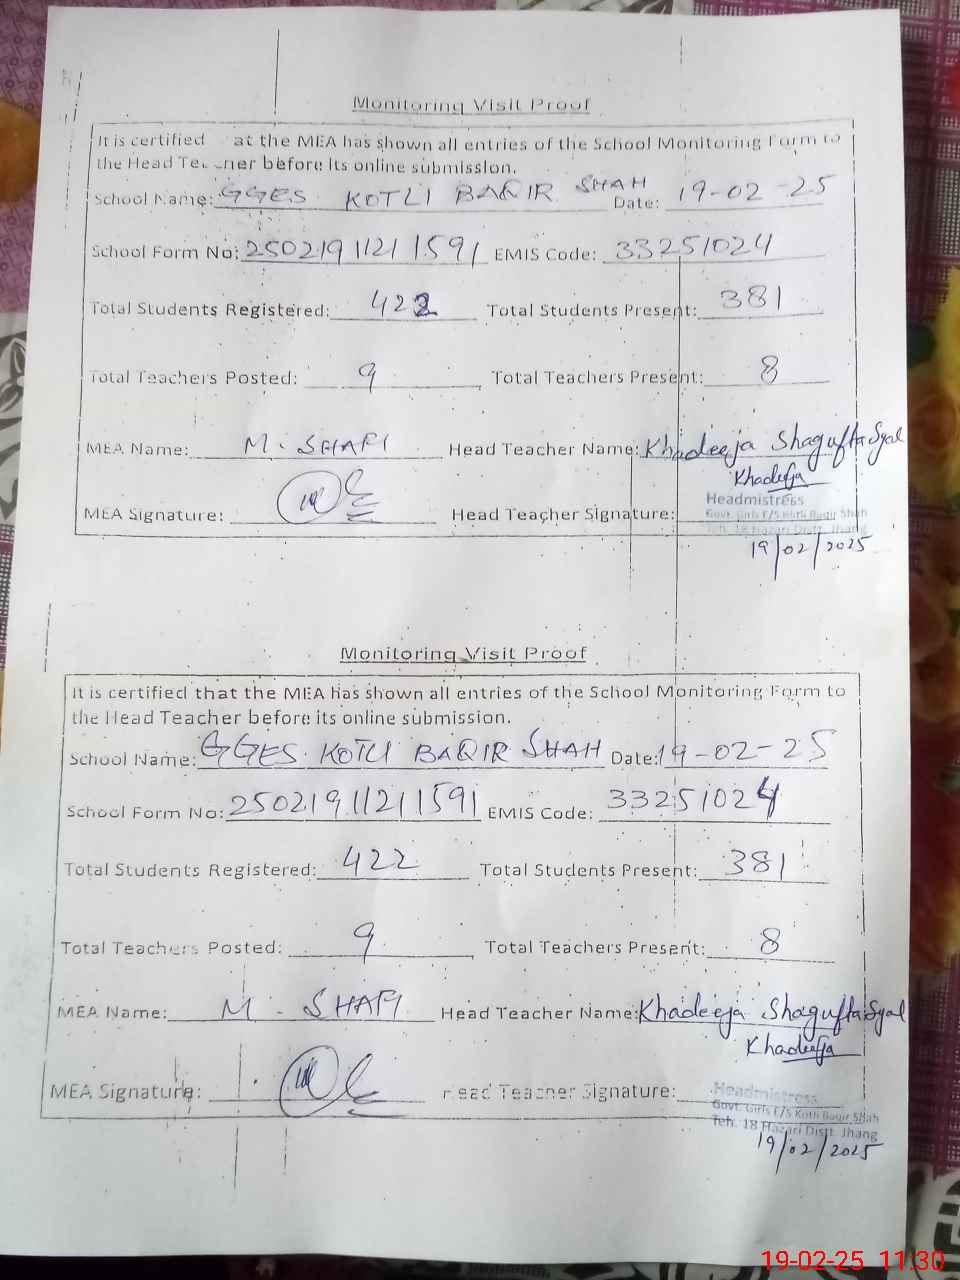 Monitoring Visit Proof
It is certified at the MEA has shown all entries of the School Monitoring Form to
the Head Te her before its online submission.
School Name: GGES KOTLI BAQIR SHAH Date: 19-02-25
School Form No: 25021911211591 EMIS Code: 33251024
Total Students Registered: 422 Total Students Present: 381
Total Teachers Posted: 9 Total Teachers Present: 8
MEA Name: M. SHAFI Head Teacher Name: Khadeeja Shagufta Syal
Khadeeja
MEA Signature: Head Teacher Signature:
Headmistress
Govt. Girls E/S Kotli Baqir Shah
Teh. 18 Hazari Distt. Jhang
19/02/2025
Monitoring Visit Proof
It is certified that the MEA has shown all entries of the School Monitoring Form to
the Head Teacher before its online submission.
School Name: GGES KOTLI BAQIR SHAH Date: 19-02-25
School Form No: 25021911211591 EMIS Code: 33251024
Total Students Registered: 422 Total Students Present: 381
Total Teachers Posted: 9 Total Teachers Present: 8
MEA Name: M. SHAFI Head Teacher Name: Khadeeja Shagufta Syal
Khadeeja
MEA Signature: Head Teacher Signature:
Headmistress
Govt. Girls E/S Kotli Baqir Shah
Teh. 18 Hazari Distt. Jhang
19/02/2025
19-02-25 11:30